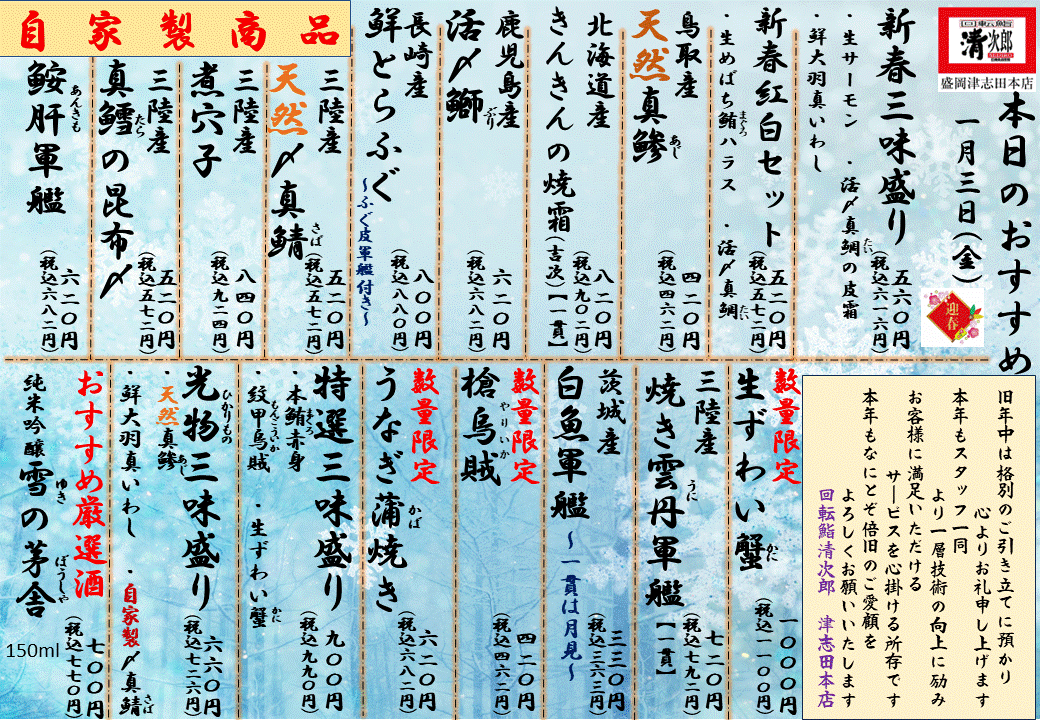 回転鮨
清次郎
盛岡津志田本店
本日のおすすめ
一月三日(金)
迎春
新春三味盛り
五六〇円
(税込六一六円)
・生サーモン ・活〆真鯛の皮霜
たい
・鮮大羽真いわし
新春紅白セット
五二〇円
(税込五七二円)
・生めばち鮪ハラス ・活〆真鯛
まぐろ
たい
鳥取産
天然真鯵
あじ
四二〇円
(税込四六二円)
北海道産
きんきんの焼霜(吉次)【一貫】
八二〇円
(税込九〇二円)
鹿児島産
活〆鰤
ぶり
六二〇円
(税込六八二円)
長崎産
鮮とらふぐ
~ふぐ皮軍艦付き~
八〇〇円
(税込八八〇円)
自家製商品
三陸産
天然〆真鯖
さば
五二〇円
(税込五七二円)
三陸産
煮穴子
八四〇円
(税込九二四円)
三陸産
真鱈の昆布〆
たら
五二〇円
(税込五七二円)
鮟肝軍艦
あんきも
六二〇円
(税込六八二円)
旧年中は格別のご引き立てに預かり
心よりお礼申し上げます
本年もスタッフ一同
より一層技術の向上に励み
お客様に満足いただける
サービスを心掛ける所存です
本年もなにとぞ倍旧のご愛顧を
よろしくお願いいたします
回転鮨清次郎 津志田本店
数量限定
生ずわい蟹
かに
一〇〇〇円
(税込一一〇〇円)
三陸産
焼き雲丹軍艦
うに
【一貫】
七二〇円
(税込七九二円)
茨城産
白魚軍艦
~一貫は月見~
三三〇円
(税込三六三円)
数量限定
槍烏賊
やりいか
四二〇円
(税込四六二円)
数量限定
うなぎ蒲焼き
かば
六二〇円
(税込六八二円)
特選三味盛り
九〇〇円
(税込九九〇円)
・本鮪赤身 ・生ずわい蟹
まぐろ
かに
・紋甲烏賊
もんごういか
光物三味盛り
ひかりもの
六六〇円
(税込七二六円)
・天然真鯵
あじ
・鮮大羽真いわし ・自家製〆真鯖
さば
おすすめ厳選酒
純米吟醸 雪の茅舎
ゆき
ぼうしゃ
150ml
七〇〇円
(税込七七〇円)